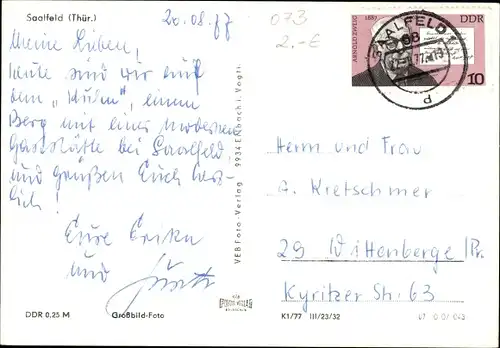 Saalfeld (Thür.)
20.08.77
073
2.-€
Meine Lieben,
heute sind wir auf
dem „Kulm", einem
Berg mit einer modernen
Gaststätte bei Saalfeld
und Grüßen Euch herz-
lich!
Eure Erika
und
VEB Foto-Verlag · 9934 Erlbach i. Vogtl.
ARNOLD ZWEIG
1887
DDR
10
SAALFELD
68
77
Herrn und Frau
A. Kretschmer
29 Wittenberge/Pr.
Kyritzer Str. 63
DDR 0,25 M
Großbild-Foto
K1/77 III/23/32